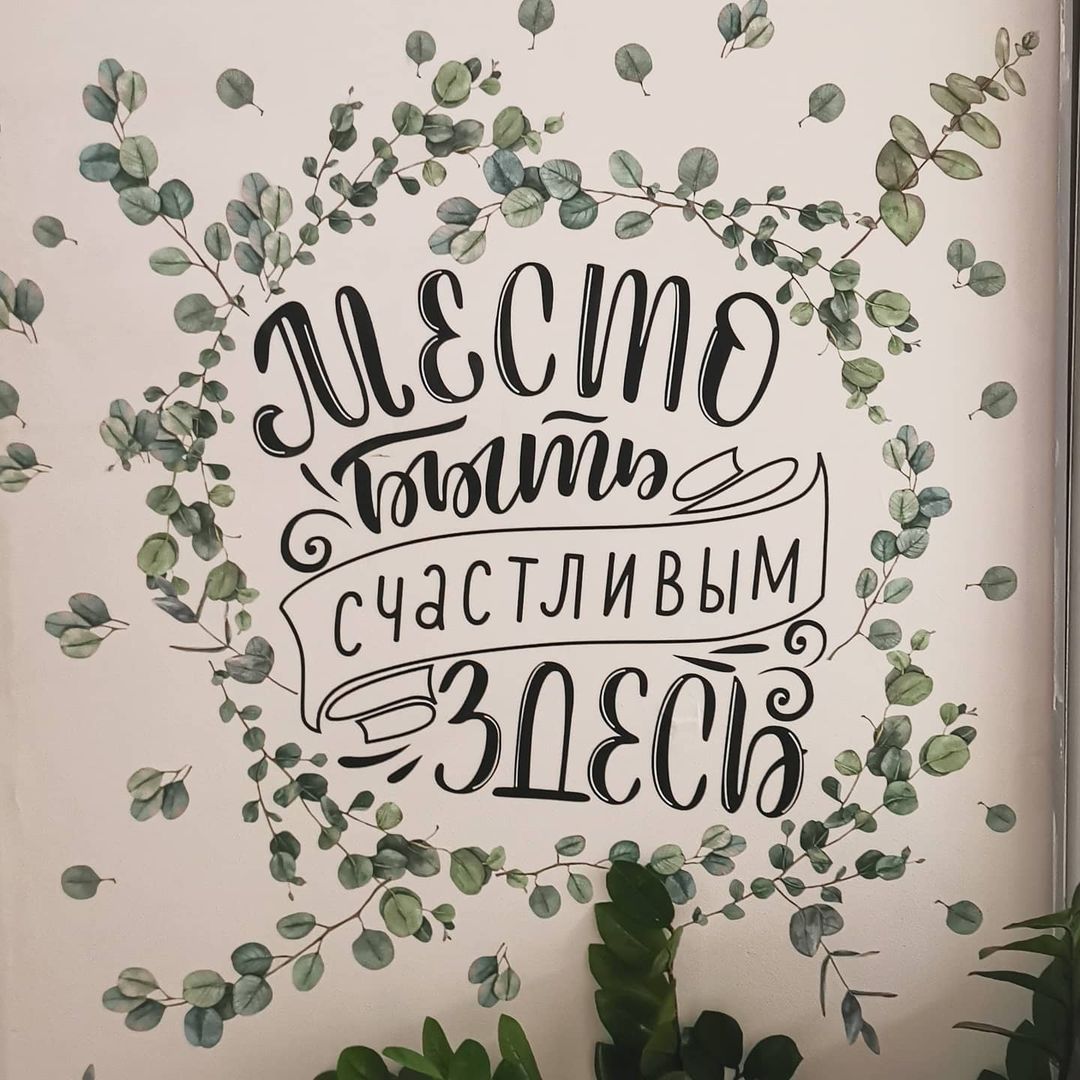 МЕСТО
быть
счастливым
ЗДЕСЬ